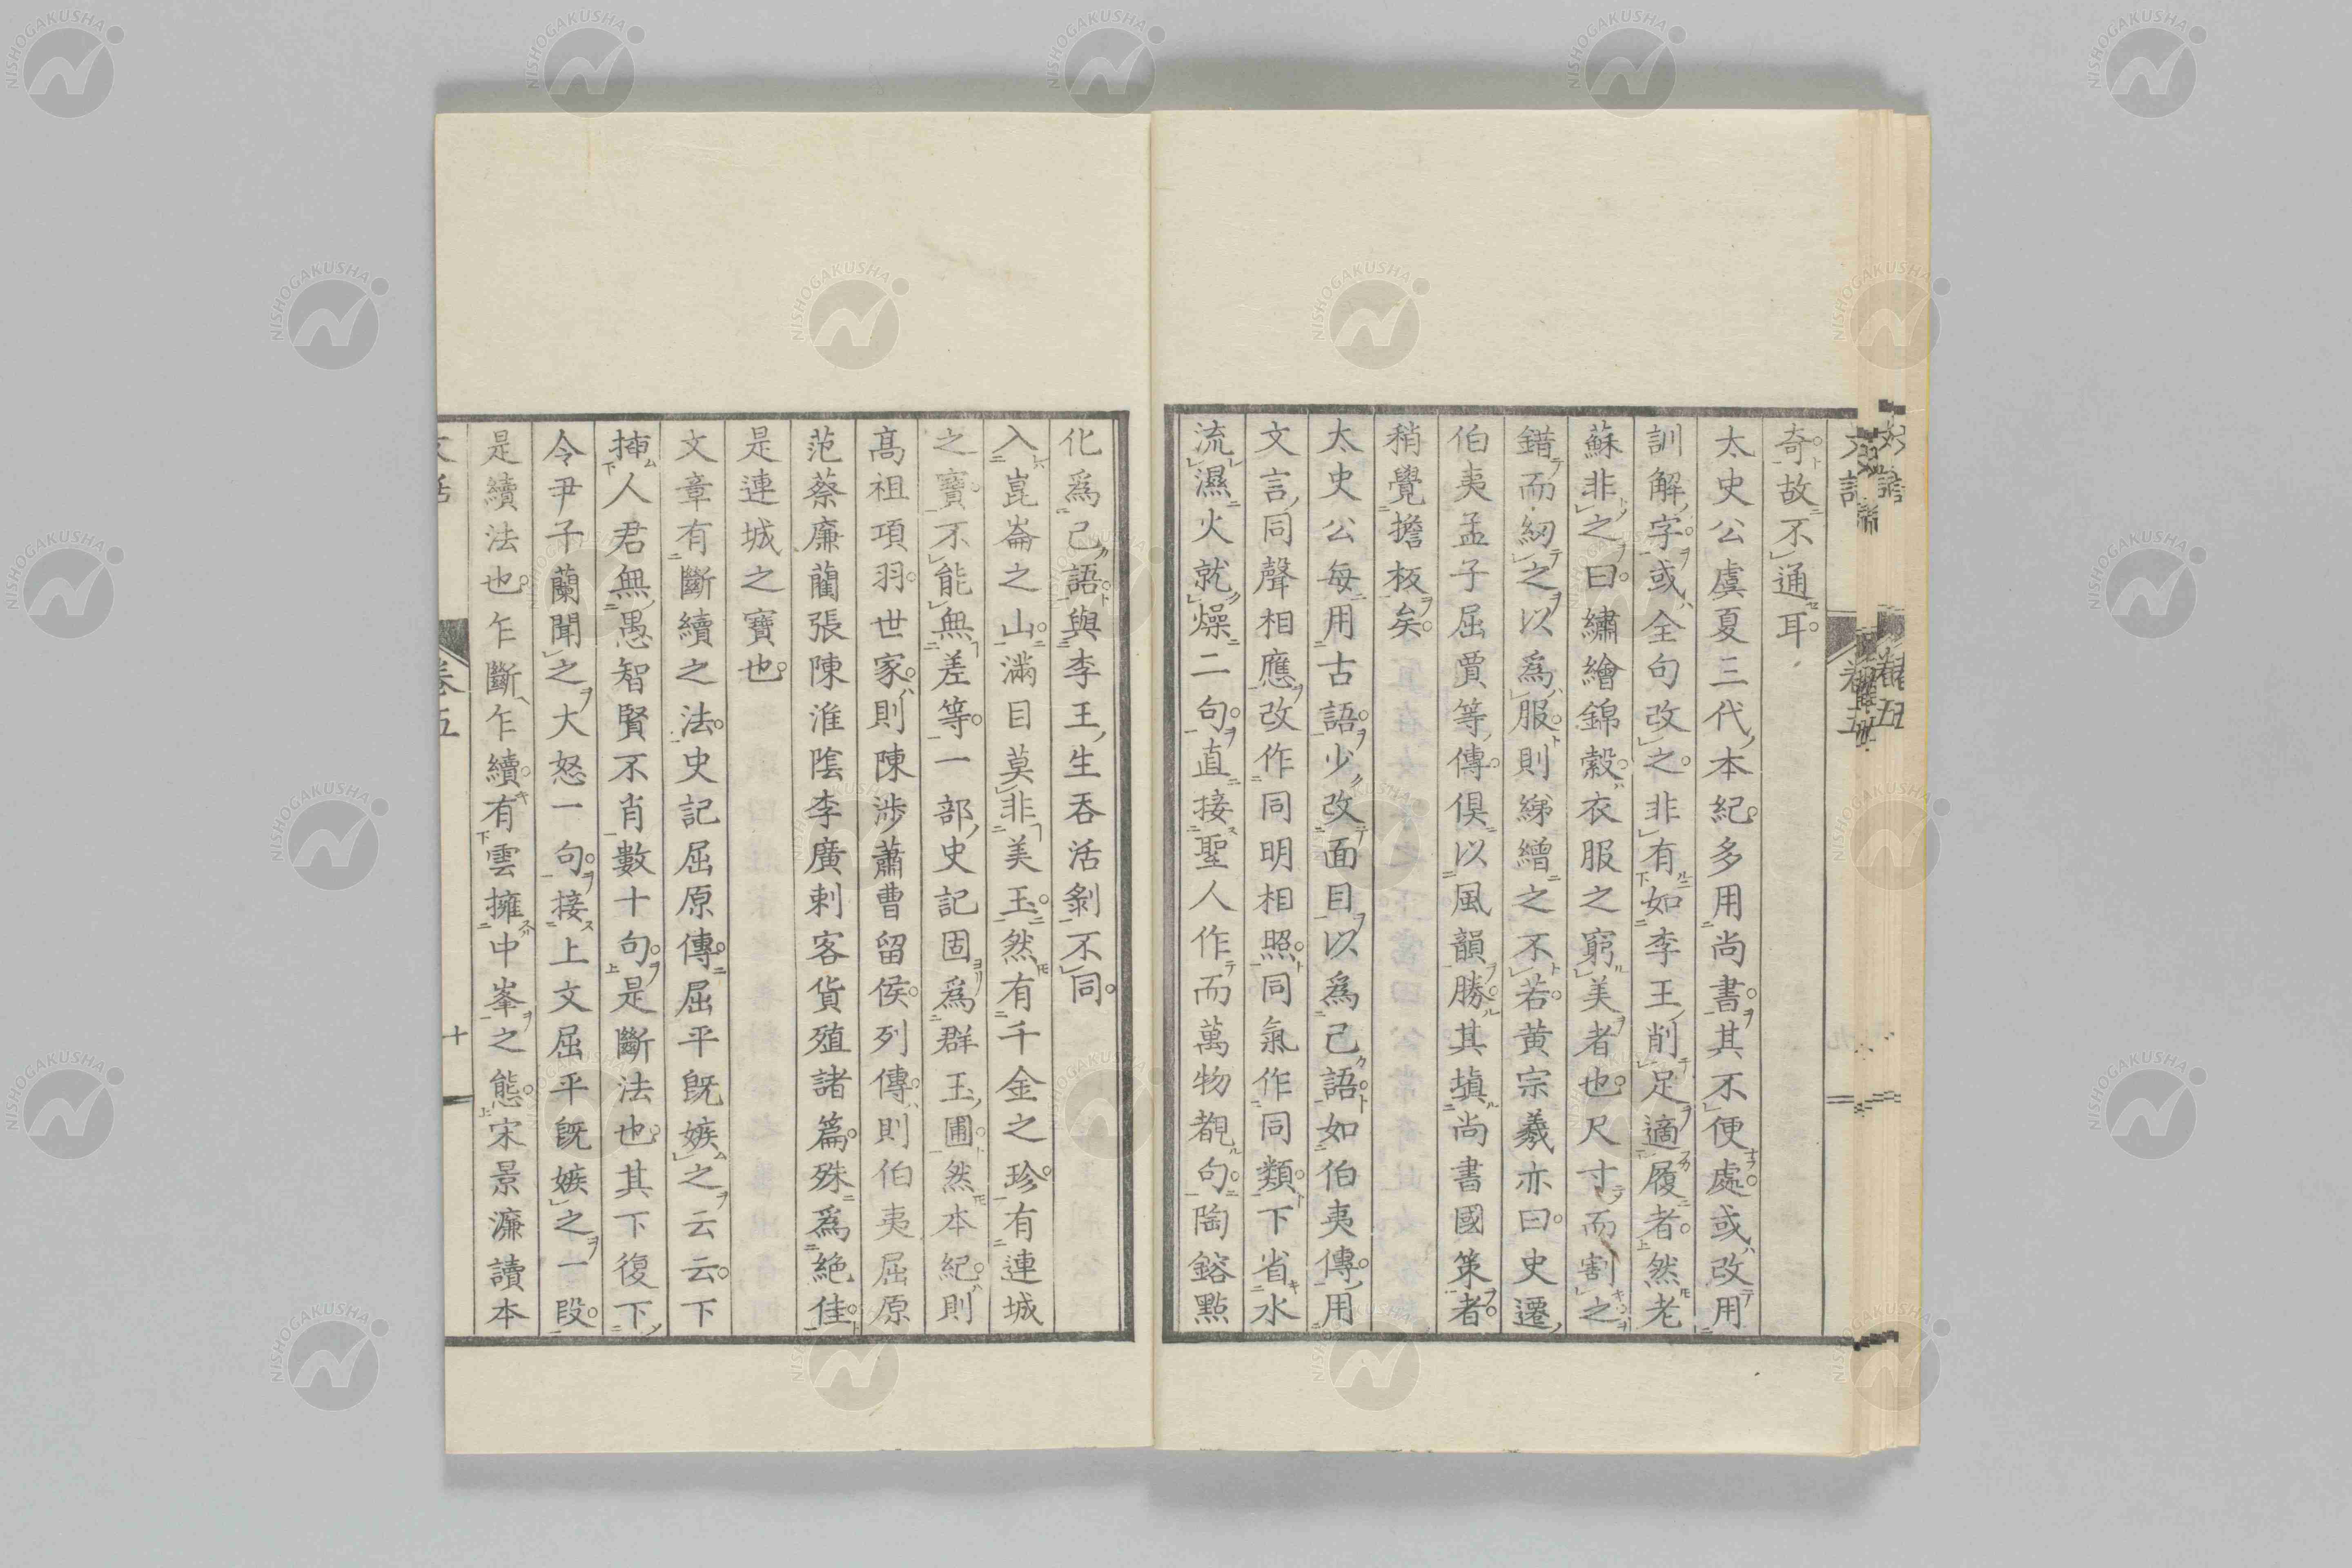 奇故不通耳
太史公虞夏三代本紀多用尚書其不便處或改用
訓解字或全句改之非有如李王削足適履者然老
蘇非之曰繡繪錦縠衣服之窮美者也尺寸而割之
錯而紉之以爲服則綈繒之不若黄宗羲亦曰史遷
伯夷孟子屈賈等傳俱以風韻勝其塡尚書國策者
稍覺擔板矣
太史公每用古語少改面目以爲己語如伯夷傳用
文言同聲相應改作同明相照同氣作同類下省水
流濕火就燥二句直接聖人作而萬物覩句陶鎔點
化爲己語與李王生呑活剝不同
入崑崙之山滿目莫非美玉然有千金之珍有連城
之寶不能無差等一部史記固爲群玉圃然本紀則
高祖項羽世家則陳涉蕭曹留侯列傳則伯夷屈原
范蔡廉藺張陳淮陰李廣刺客貨殖諸篇殊爲絶佳
是連城之寶也
文章有斷續之法史記屈原傳屈平既嫉之云云下
挿人君無愚智賢不肖數十句是斷法也其下復下
令尹子蘭聞之大怒一句接上文屈平既嫉之一段
是續法也乍斷乍續有雲擁中峯之態宋景濂讀本
卷五
十
NISHOGAKUSHA